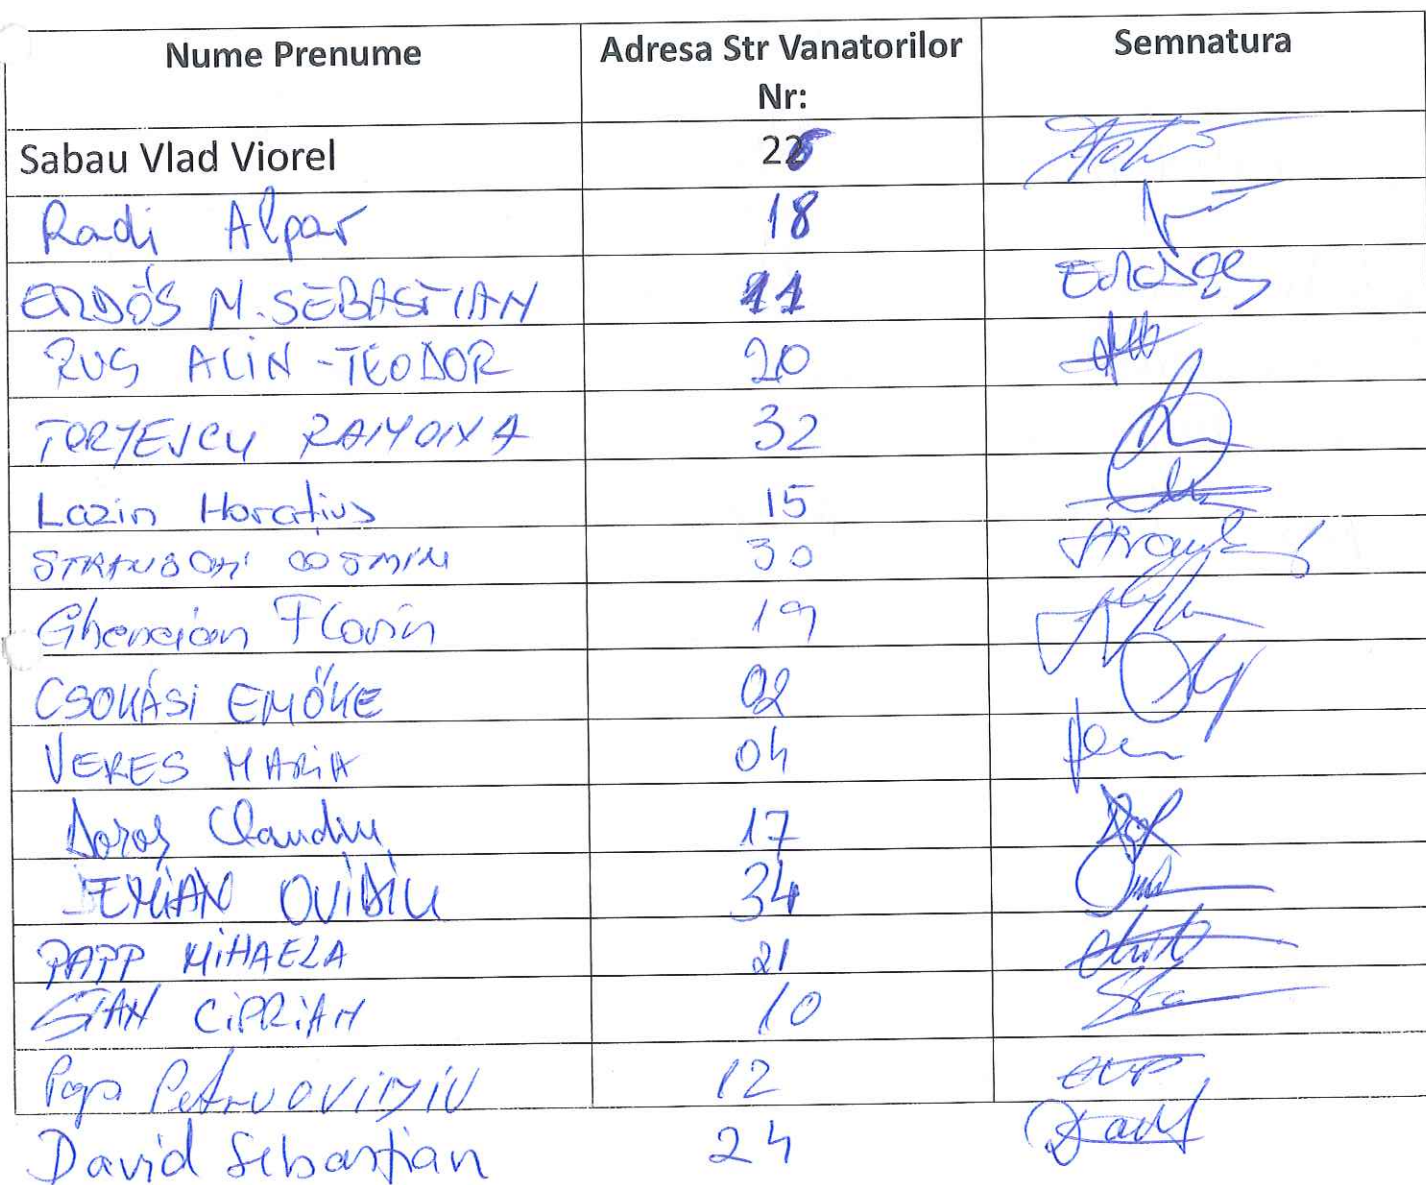 Nume Prenume Adresa Str Vanatorilor Semnatura
Nr:
Sabau Vlad Viorel
Radi Alpar 18
ERDŐS M. SEBASTIAN 11
RUS ALIN-TEODOR 20
RAMONA 32
Lazin Horatius 15
COSMIN 30
Ghencian Florin 19
CSOKÁSI EMŐKE 02
VERES MARIA 04
Doroș Claudiu 17
OVIDIU 34
PAPP MIHAELA 21
STAN CIPRIAN 10
Pop Petru OVIDIU 12
David Sebastian 24